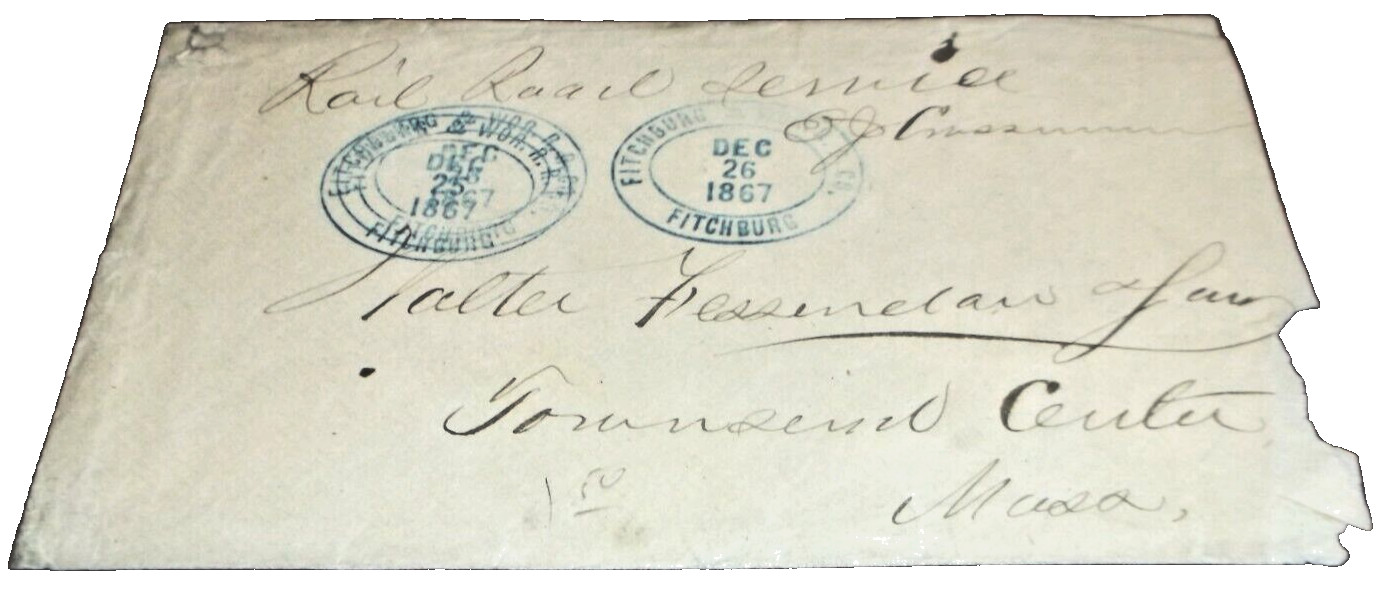 Rail Road Service
E J Crossman
FITCHBURG & WOR. R.R. CO.
DEC
25
1867
FITCHBURG
FITCHBURG CO.
DEC
26
1867
FITCHBURG
Walter Fessendan &
Townsend Center
Mass,